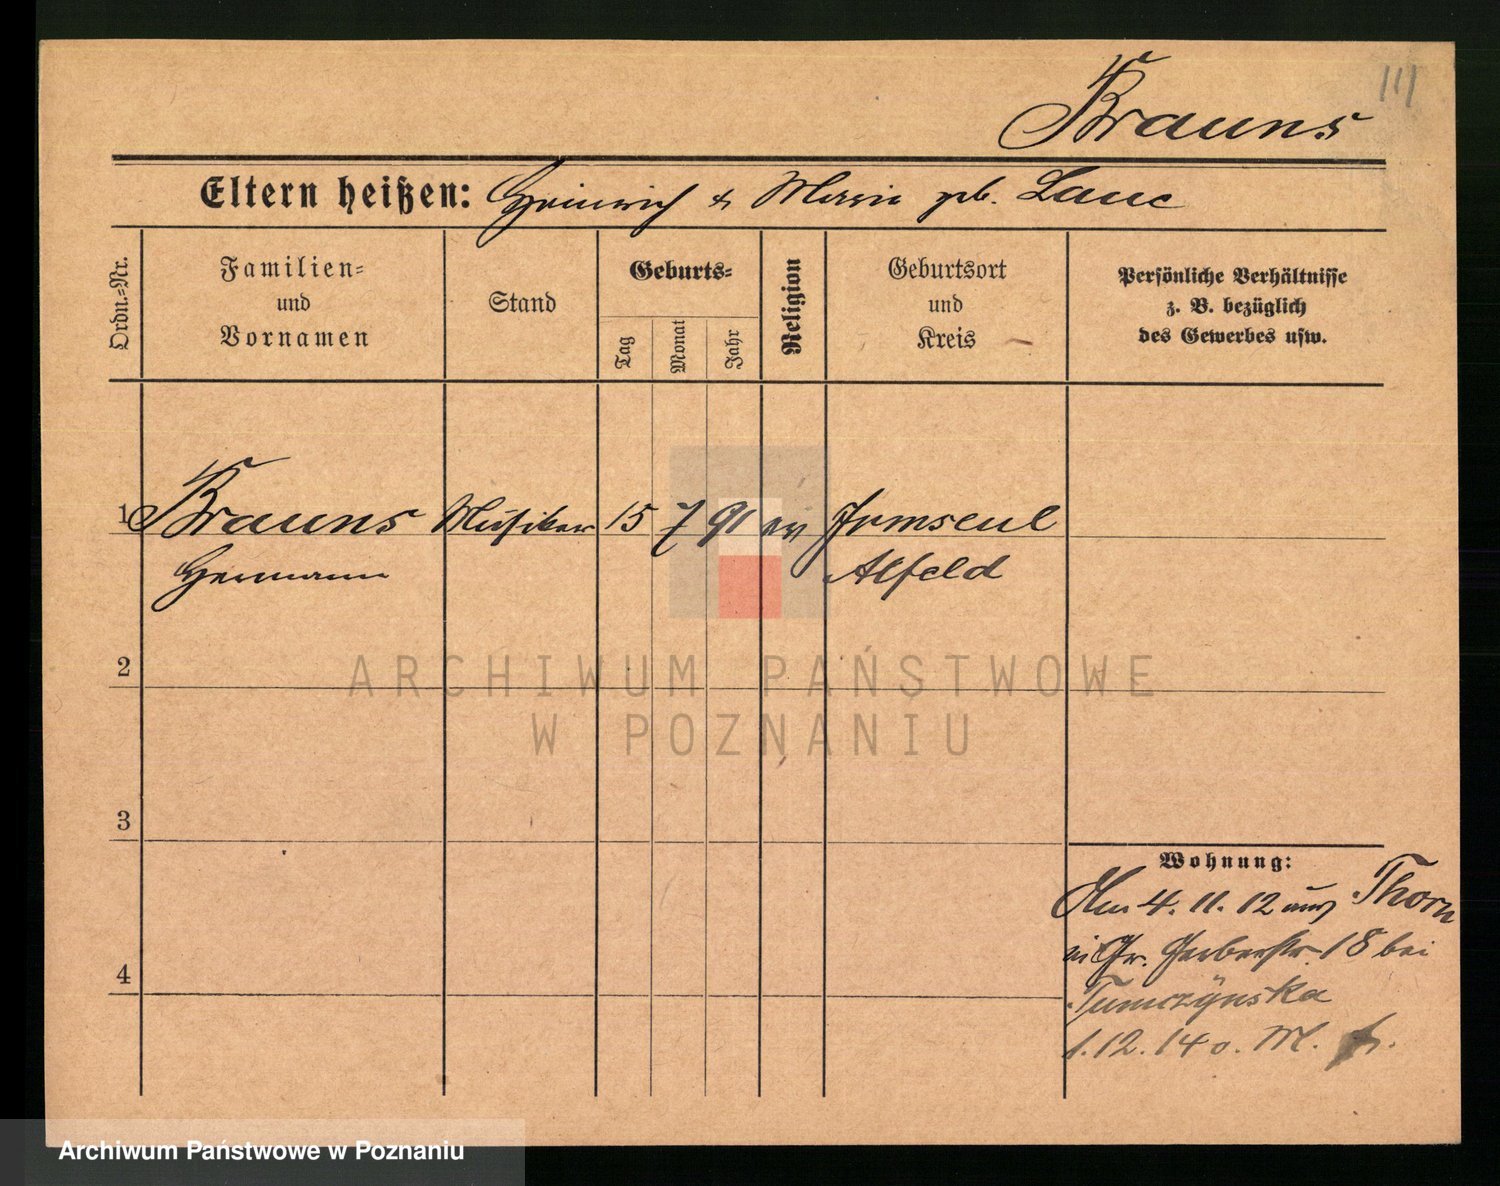 111
Brauns
Eltern heißen: Heinrich & Marie geb. Laue
Ordn.=Nr.
Familien=
und
Vornamen
Stand
Geburts=
Tag
Monat
Jahr
Religion
Geburtsort
und
Kreis
Persönliche Verhältnisse
z. B. bezüglich
des Gewerbes usw.
1 Brauns Musiker 15 7 91 ev Irmseul
Hermann Alfeld
2
3
4
Wohnung:
Am 4. 11. 12 aus Thorn
in Gr. Gerberstr. 18 bei
Tumczynska
1. 12. 14 o. M.
ARCHIWUM PAŃSTWOWE
W POZNANIU
Archiwum Państwowe w Poznaniu